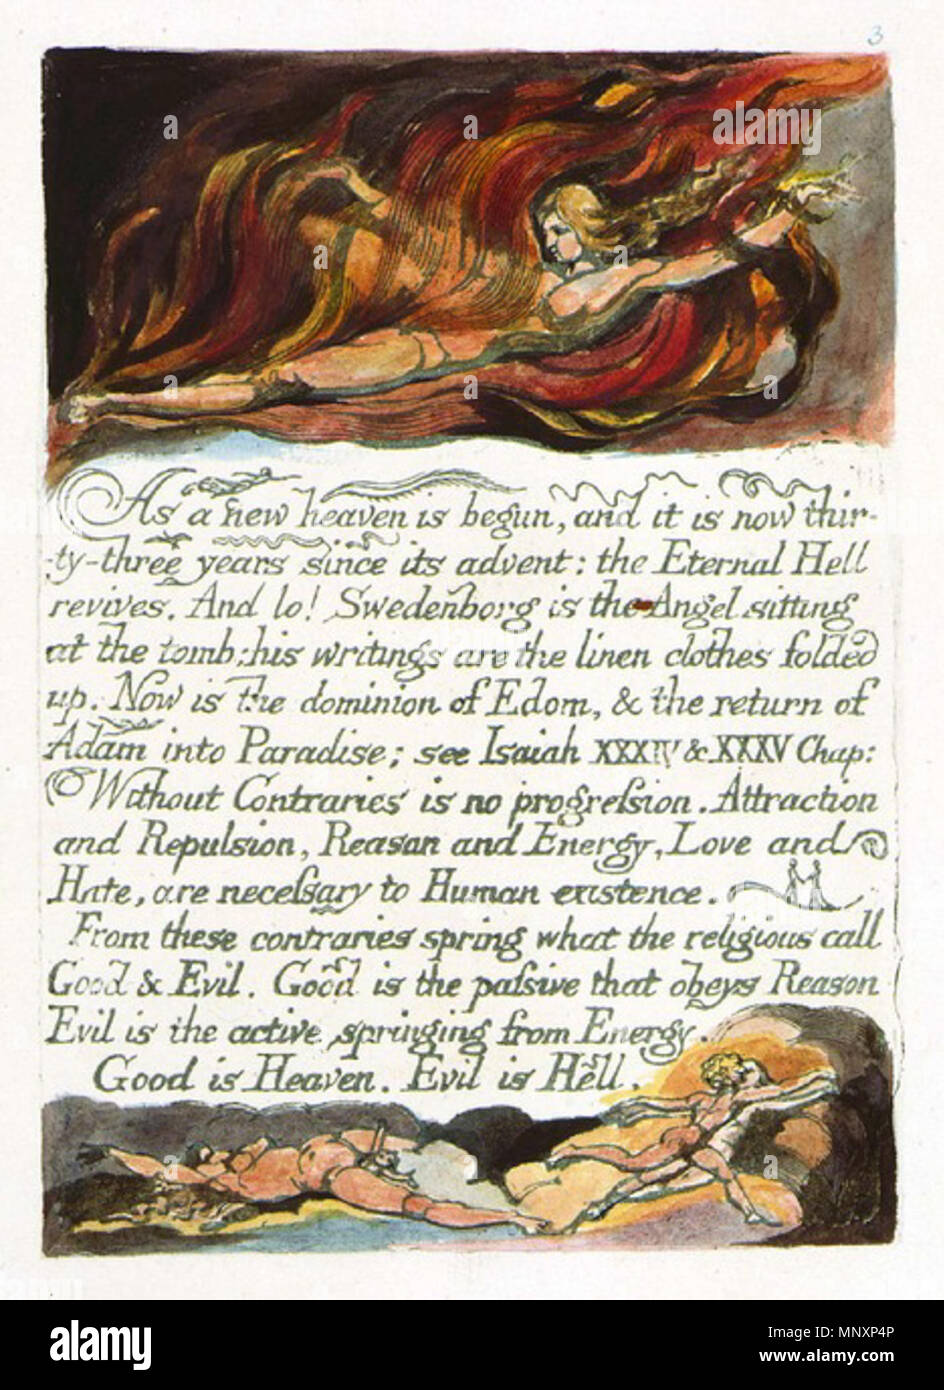 3
As a new heaven is begun, and it is now thir-
-ty-three years since its advent: the Eternal Hell
revives. And lo! Swedenborg is the Angel sitting
at the tomb: his writings are the linen clothes folded
up. Now is the dominion of Edom, & the return of
Adam into Paradise; see Isaiah XXXIV & XXXV Chap:
Without Contraries is no progreſsion. Attraction
and Repulsion, Reason and Energy, Love and
Hate, are neceſsary to Human existence.
From these contraries spring what the religious call
Good & Evil. Good is the paſsive that obeys Reason
Evil is the active springing from Energy.
Good is Heaven. Evil is Hell.
a alamy stock photo
a
a
a
a
a
a
alamy
Image ID: MNXP4P
www.alamy.com